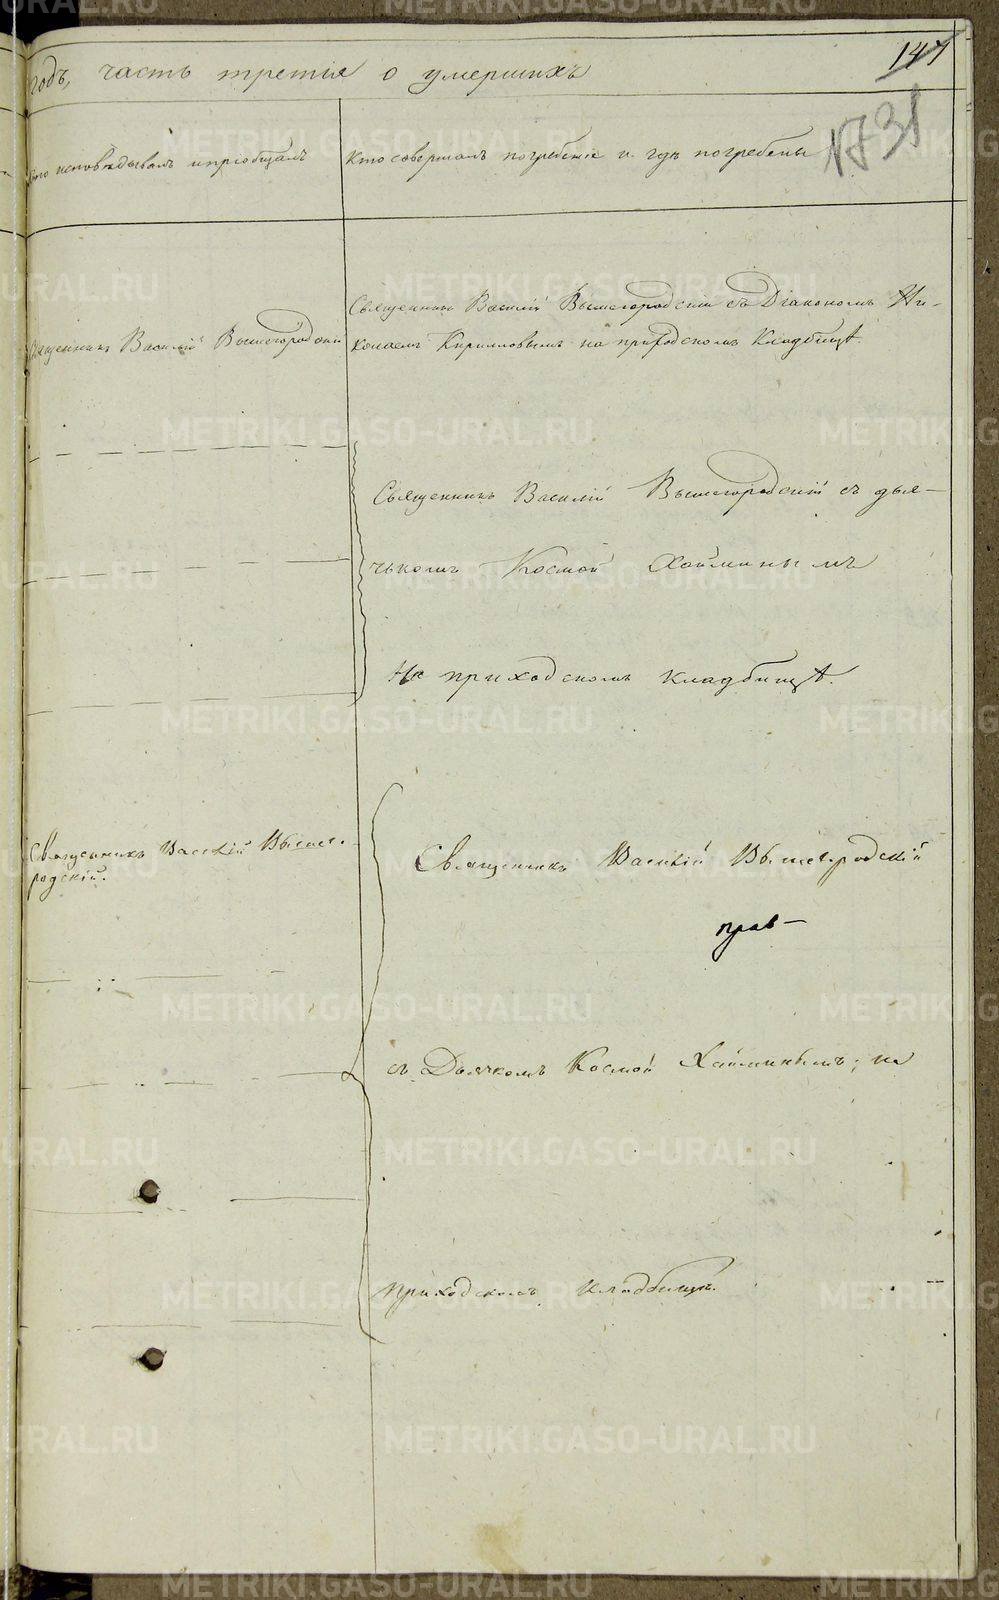 147
годъ, часть третія о умершихъ
731
Кто исповѣдывалъ и пріобщалъ
Кто совершалъ погребеніе и гдѣ погребены
Священникъ Василій Вышегородскій
Священникъ Василій Вышегородскій съ Діакономъ Ни-
колаемъ Кирилловымъ на приходскомъ Кладбищѣ.
Священникъ Василій Вышегородскій съ дья-
чькомъ Космой
На приходскомъ кладбищѣ.
Священникъ Василій Вышего-
родскій.
Священникъ Василій Вышегородскій
прав—
съ Дьячкомъ Космой на
приходскомъ кладбищѣ.
METRIKI.GASO-URAL.RU